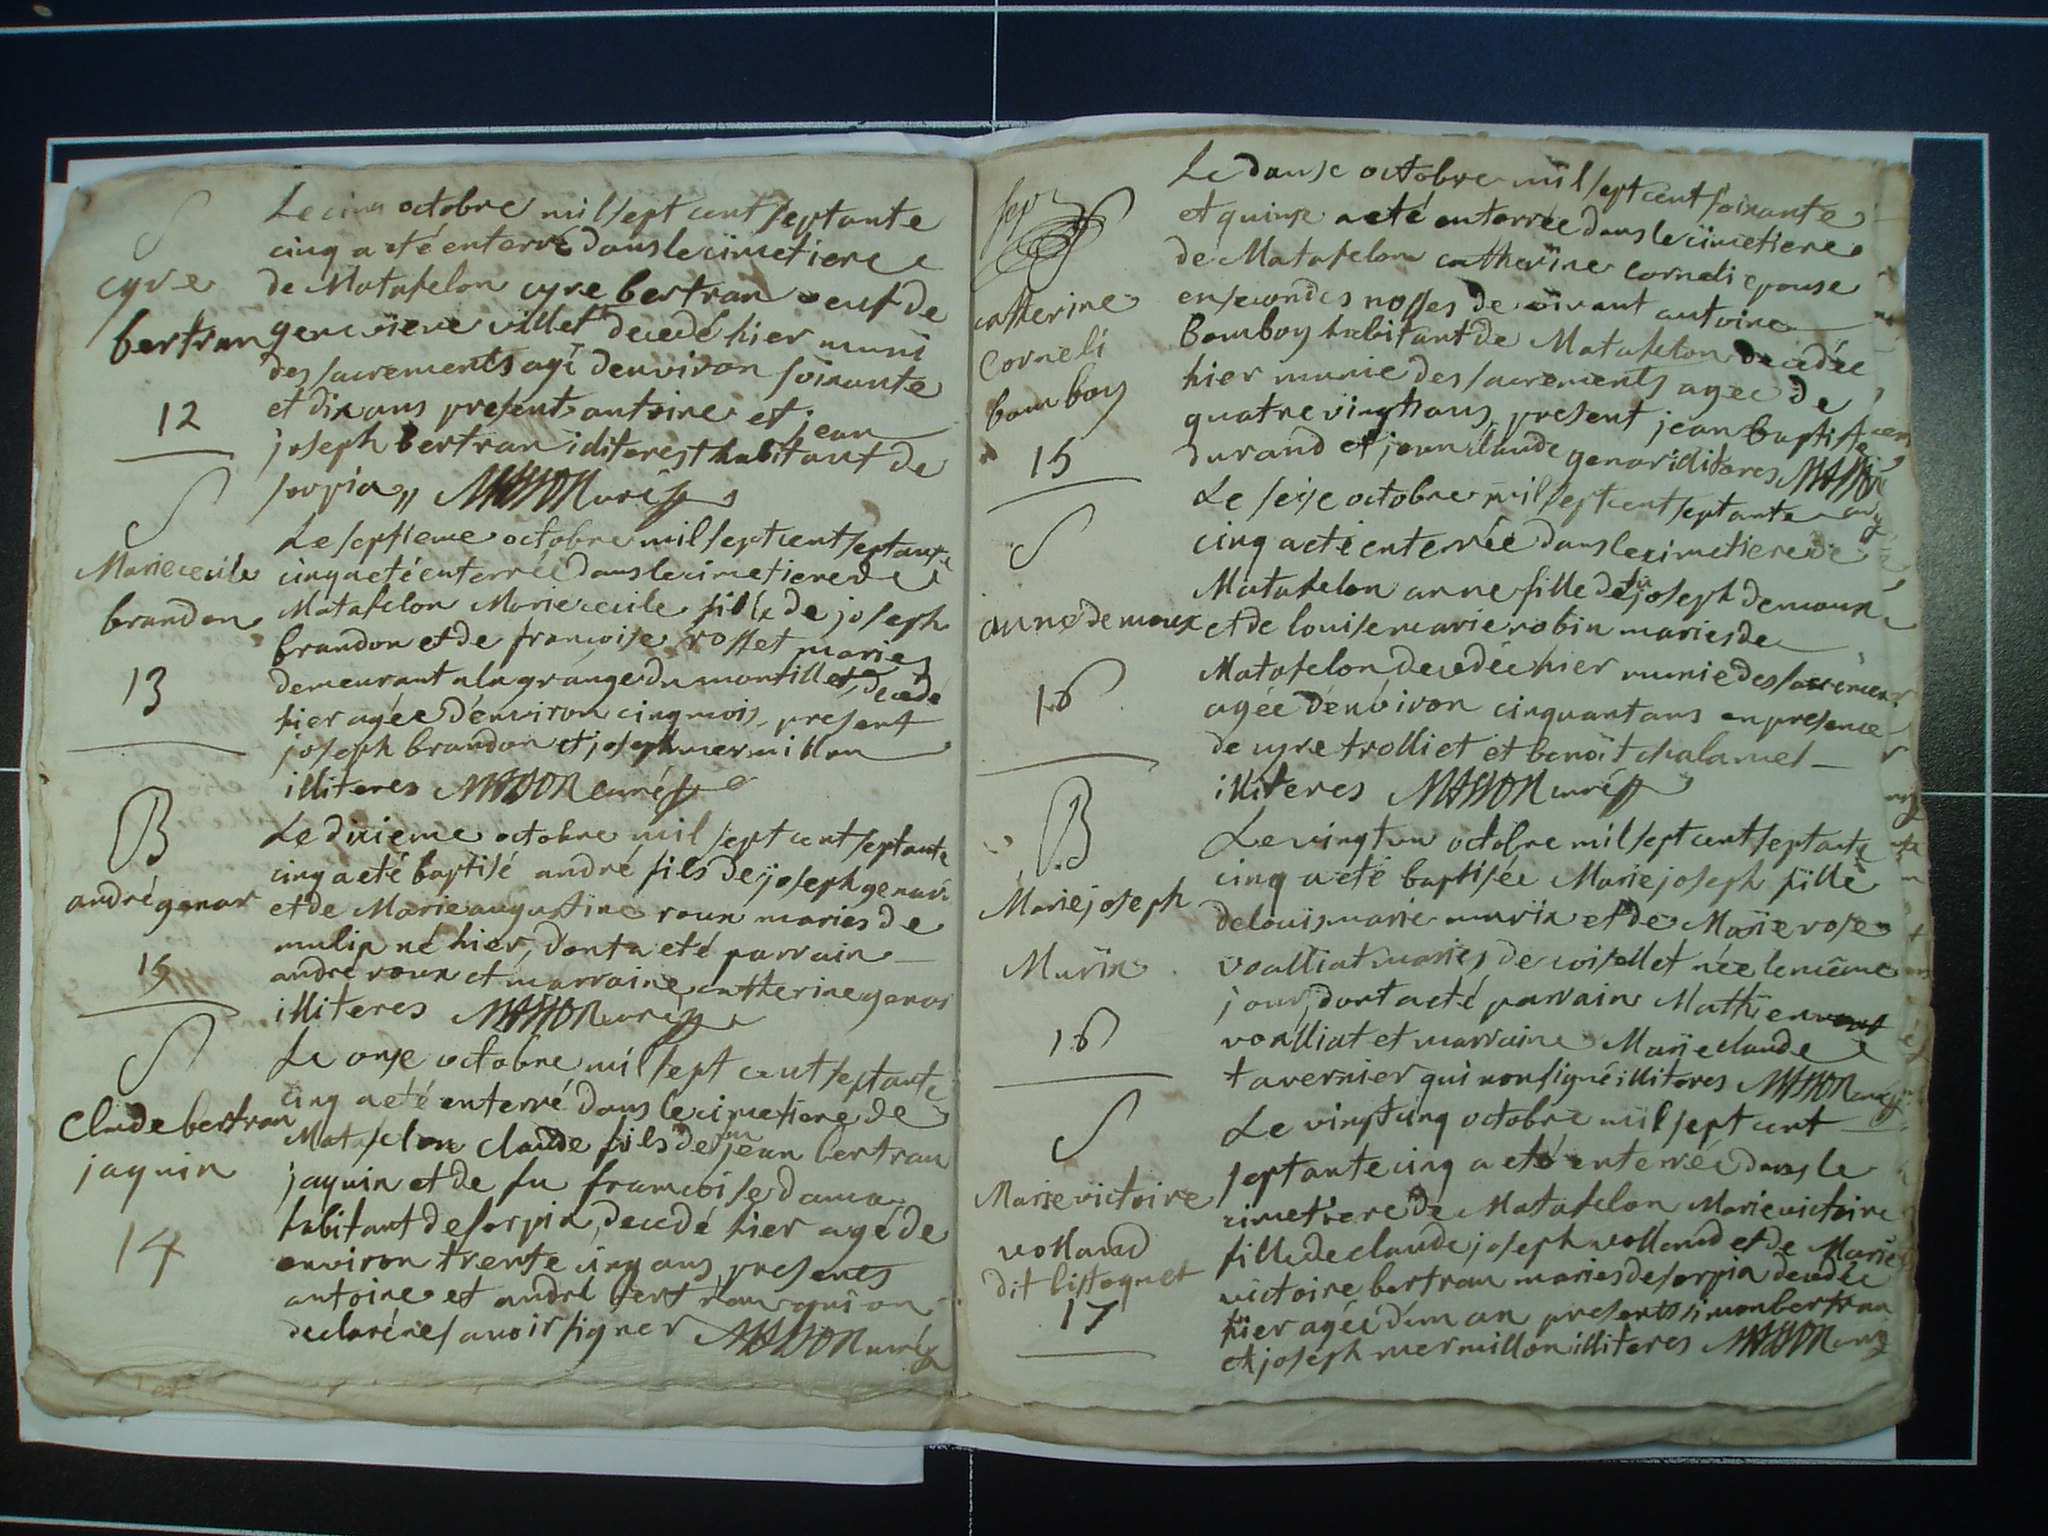 S
cyre
bertran
12
Le cinq octobre mil sept cent septante
cinq a eté enterré dans le cimetiere
de Matafelon cyre bertran veuf de
genevieve villet decedé hier muni
des sacrements agé denviron soixante
et dix ans present antoine et jean
joseph bertran illiterest habitant de
sorpia,, MASSON curé
S
Marie cecile
brandon
13
Le septieme octobre mil sept cent septante
cinq a eté enterrée dans le cimetiere de
Matafelon Marie cecile fille de joseph
brandon et de francoise rosset mariés
demeurant a la grange du montillet, decedé
hier agée d'environ cinq mois present
joseph brandon et joseph mermillon
illiteres MASSON curé
B
andré genar
15
Le dixieme octobre mil sept cent septante
cinq a eté baptisé andré fils de joseph genari
et de Marie augustine roux maries de
mulia né hier, dont a eté parrain
andré roux et marraine catherine genari
illiteres MASSON curé
S
Claude bertran
jaquin
14
Le onse octobre mil sept cent septante
cinq a eté enterré dans le cimetiere de
Matafelon claude fils de fu jean bertran
jaquin et de fu francoise dama
habitant de sorpia, decedé hier agé de
environ trente cinq ans presents
antoine et andré bertran qui on
declaré ne savoir signer MASSON curé
sepr
catherine
Corneli
bamboy
15
Le douse octobre mil sept cent soixante
et quinse a eté enterrée dans le cimetiere
de Matafelon catherine Corneli epouse
en secondes nosses de vivant antoine
Bomboy habitant de Matafelon decedée
hier munie des sacrements agée de
quatre vingts ans, present jean baptiste
durand et jean claude genari illiteres MASSON
curé
S
anne demoux
16
Le seise octobre mil sept cent septante
cinq a eté enterrée dans le cimetiere de
Matafelon anne fille de fu joseph demoux
et de louise marie robin maries de
Matafelon decedée hier munie des sacrement
agée d'environ cinquant ans en presence
de cyre trolliet et benoit chalamel
illiteres MASSON curé
B
Marie joseph
Murïa
16
Le vingt un octobre mil sept cent septante
cinq a eté baptisée Marie joseph fille
de louis marie murïa et de Marie rose
voalliat maries de coisellet née le même
jour, dont a eté parrain Mathieu
voalliat et marraine Marie claude
tavernier qui non signé illiteres MASSON curé
S
Marie victoire
volland
dit bissognet
17
Le vingt cinq octobre mil sept cent
septante cinq a eté enterrée dans le
cimetiere de Matafelon Marie victoire
fille de claude joseph volland et de Marie
victoire bertran maries de sorpia decedée
hier agée d'un an presents simon bertran
et joseph mermillon illiteres MASSON curé